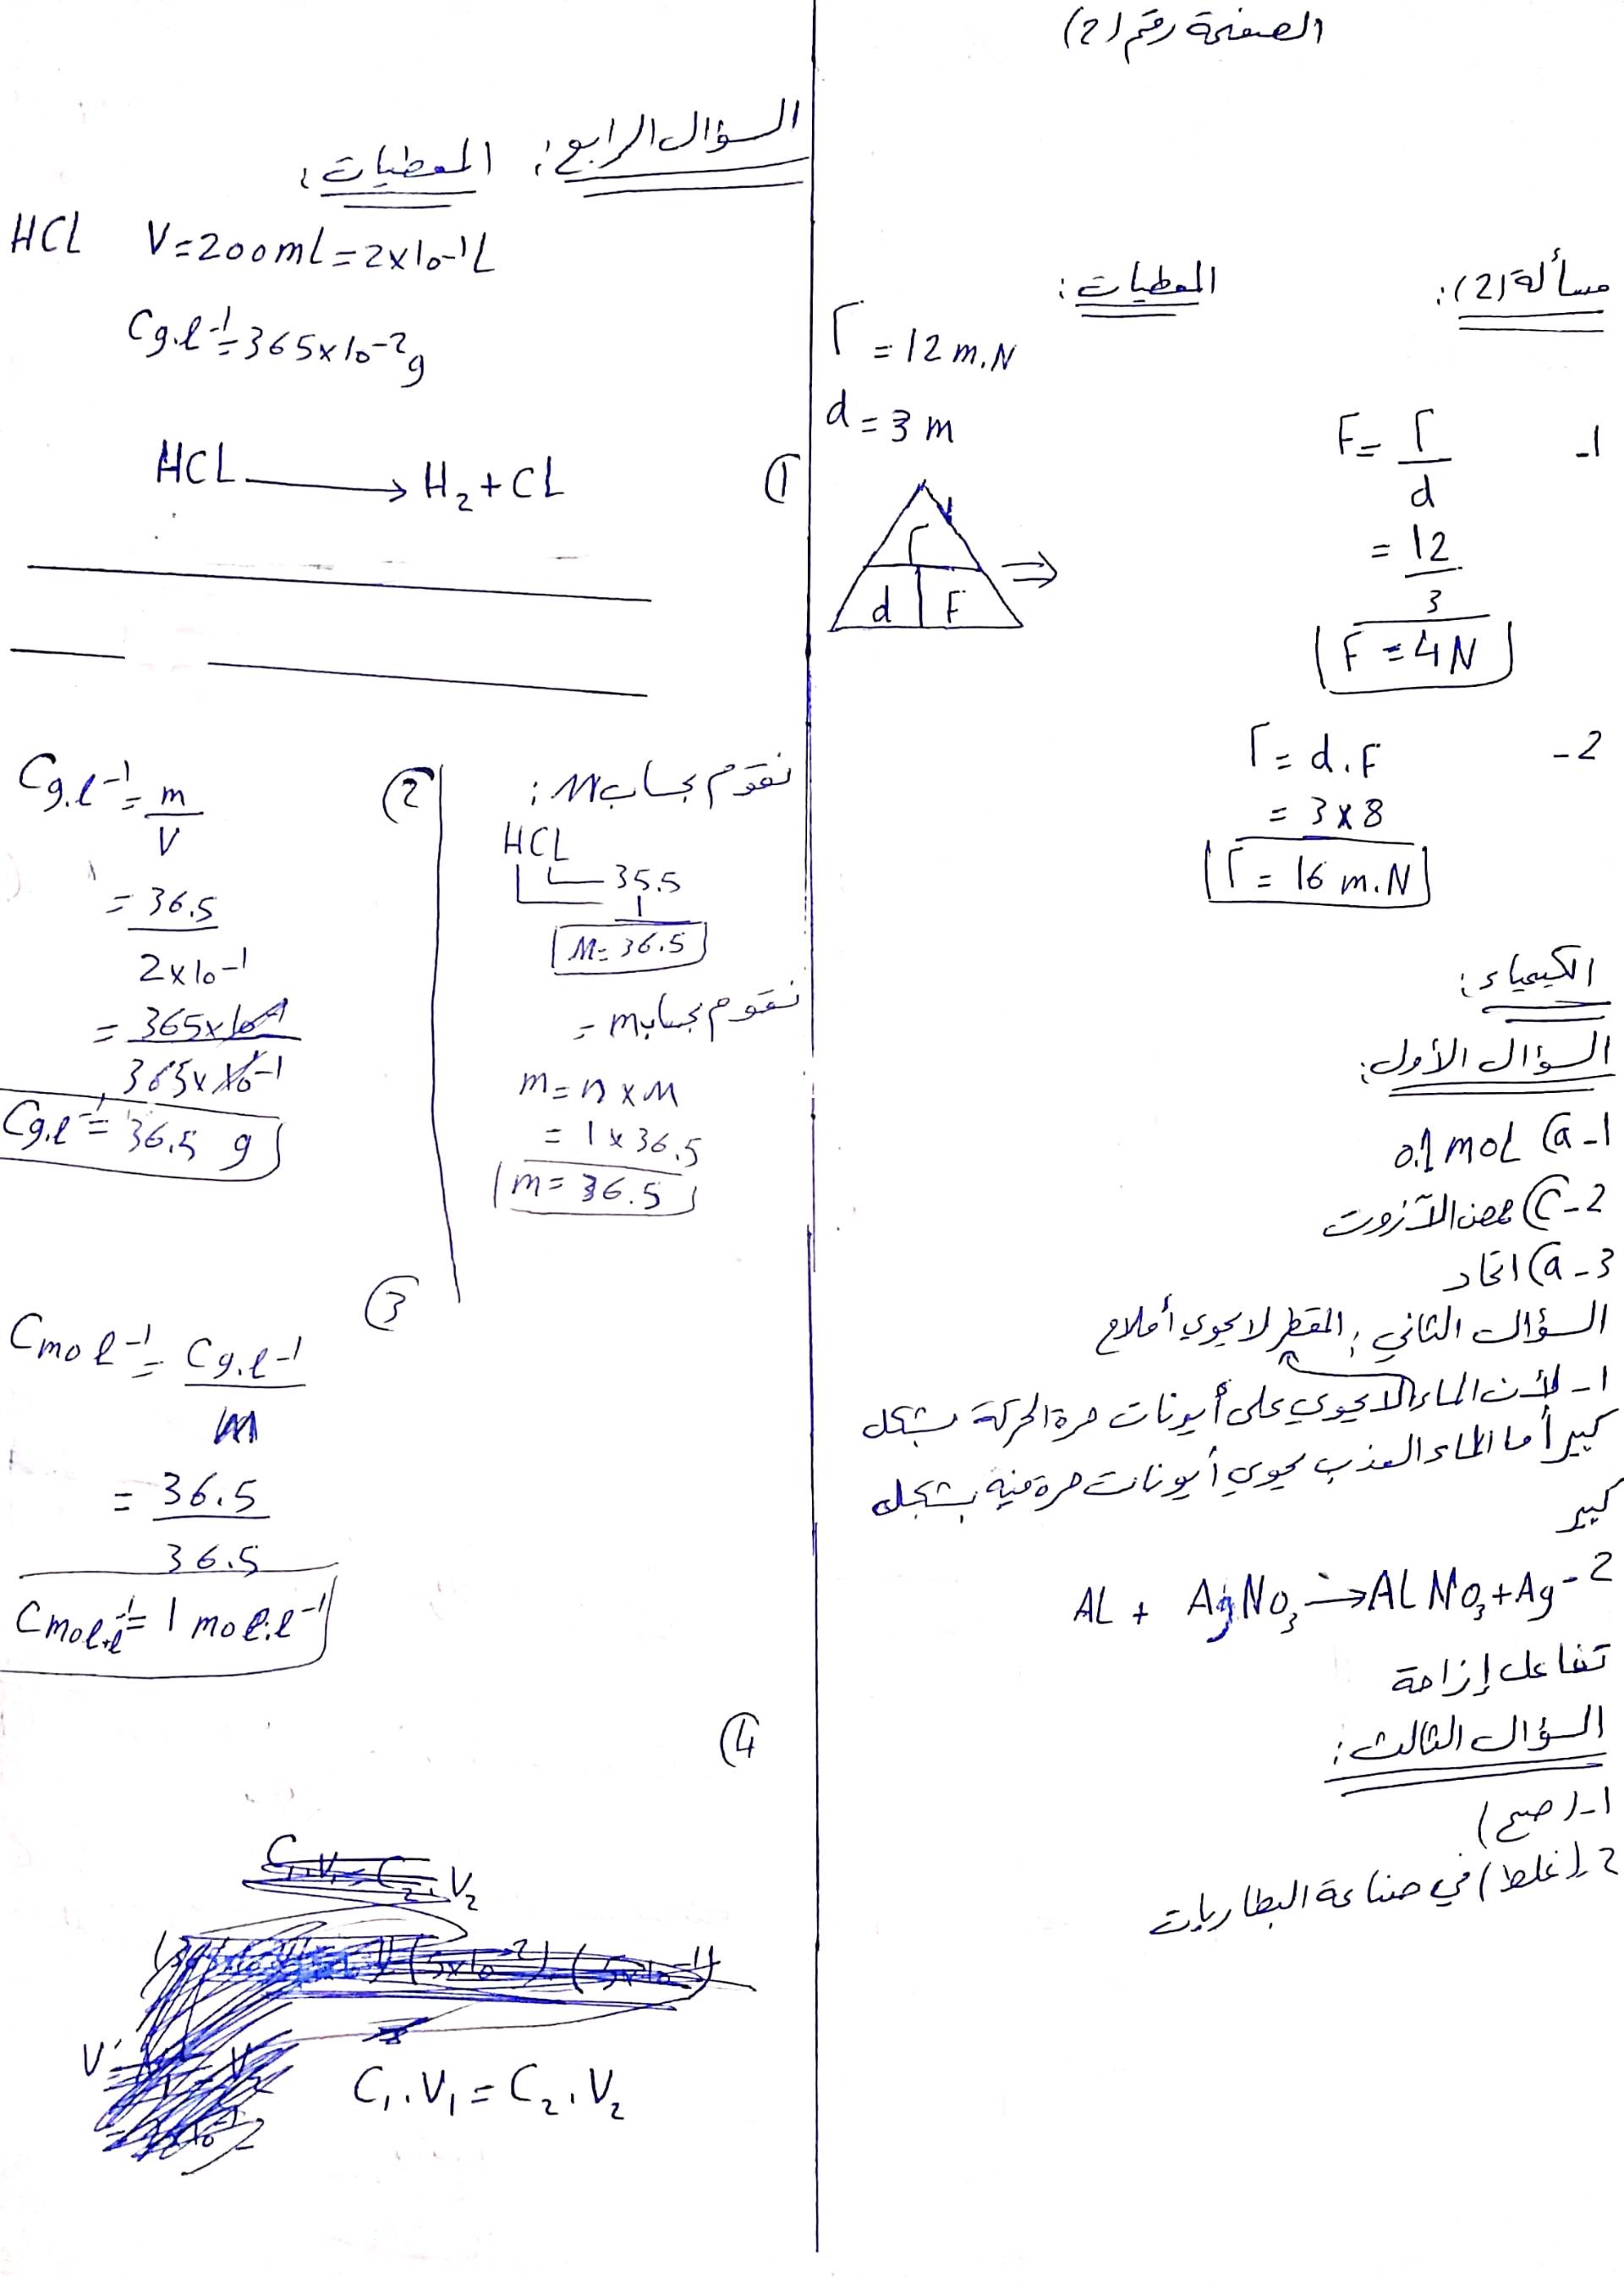 الصفحة رقم (2)
مسألة (2): المعطيات:
Γ = 12 m.N
d = 3 m
1- F = Γ / d
= 12 / 3
F = 4N
Γ
d F
⇒
2- Γ = d.F
= 3 x 8
Γ = 16 m.N
الكيمياء:
السؤال الأول:
1- a) 0.1 moL
2- C) حمض الآزوت
3- a) اتحاد
السؤال الثاني: المقطر لا يحوي أملاح
1- لأن الماء لا يحوي على أيونات حرة الحركة بشكل
كبير أما الماء العذب يحوي أيونات حرة فيه بشكل
كبير
2- AL + AgNO3 → ALNO3 + Ag
تفاعل إزاحة
السؤال الثالث:
1- (صح)
2- (غلط) في صناعة البطاريات
السؤال الرابع: المعطيات:
HCL V = 200mL = 2x10-1L
Cg.l-1 = 365x10-2g
① HCL → H2 + CL
نقوم بحساب M:
HCL
35.5
1
M = 36.5
نقوم بحساب m =
m = n x M
= 1 x 36.5
m = 36.5
②
Cg.l-1 = m / V
= 36.5 / 2x10-1
= 365x10-1
365x10-1
Cg.l-1 = 36.5 g
③
Cmol-1 = Cg.l-1 / M
= 36.5 / 36.5
Cmol.l-1 = 1 mol.l-1
④
C1.V1 = C2.V2
C1.V1 = C2.V2